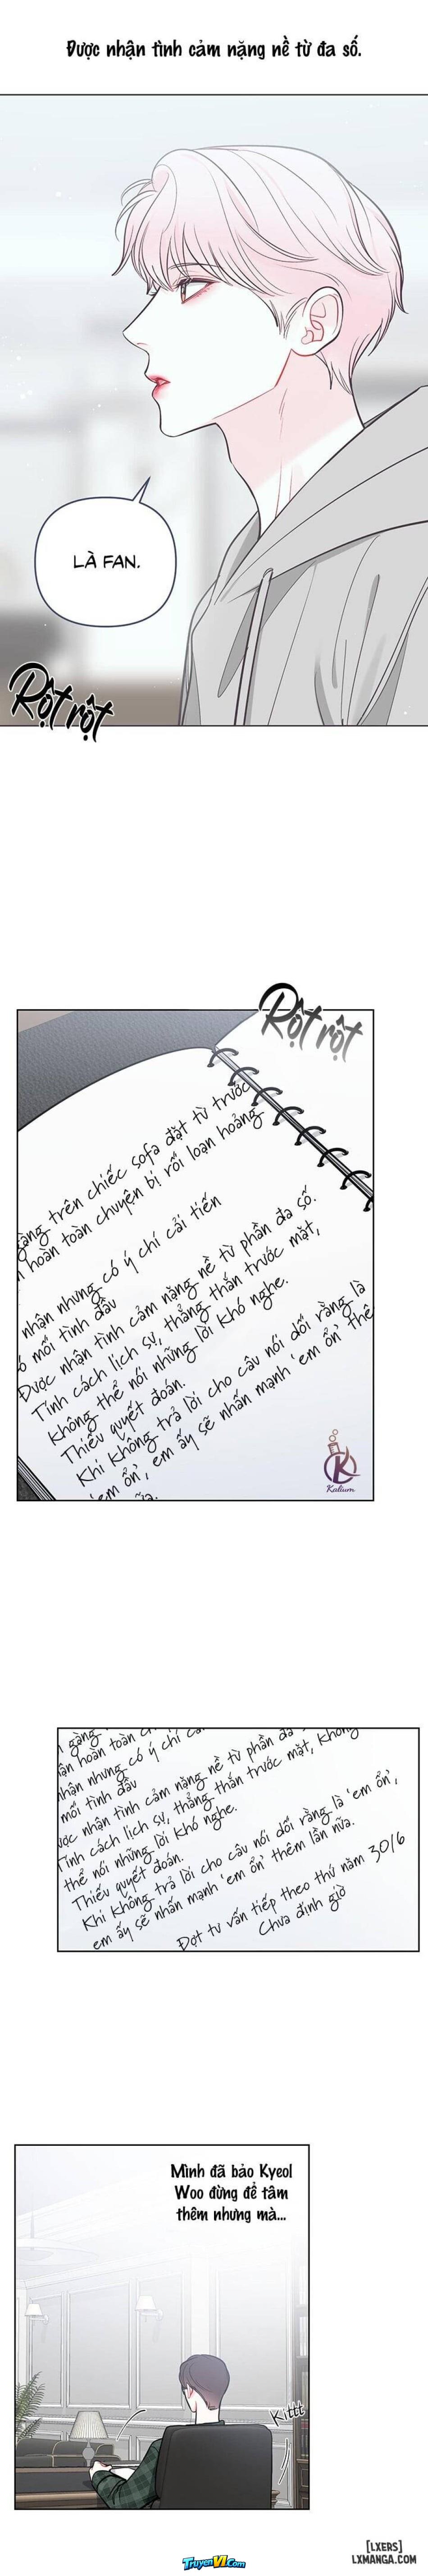 Được nhận tình cảm nặng nề từ đa số.
LÀ FAN.
Rột rột
Rột rột
gàng trên chiếc sofa đặt từ trước
n hoàn toàn chuyện bị rối loạn hoảng
nhận nhưng có ý chí cải tiến
ó mối tình đầu
Được nhận tình cảm nặng nề từ phần đa số.
Tính cách lịch sự, thẳng thắn trước mặt,
không thể nói những lời khó nghe.
Thiếu quyết đoán.
Khi không trả lời cho câu nói dối rằng là
'em ổn', em ấy sẽ nhấn mạnh 'em ổn' thê
nữa.
Kalium
gàng
ận hoàn toàn ch
nhận nhưng có ý chí cả
mối tình đầu
ược nhận tình cảm nặng nề từ phần đa
Tính cách lịch sự, thẳng thắn trước mặt, không
thể nói những lời khó nghe.
Thiếu quyết đoán.
Khi không trả lời cho câu nói dối rằng là 'em ổn',
em ấy sẽ nhấn mạnh 'em ổn' thêm lần nữa.
Đợt tư vấn tiếp theo thứ năm 30/6
Chưa định giờ
Mình đã bảo Kyeol
Woo đừng để tâm
thêm nhưng mà...
Kittt
TruyenVi.Com
[LXERS]
LXMANGA.COM